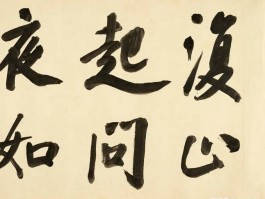 復正
起問
夜如